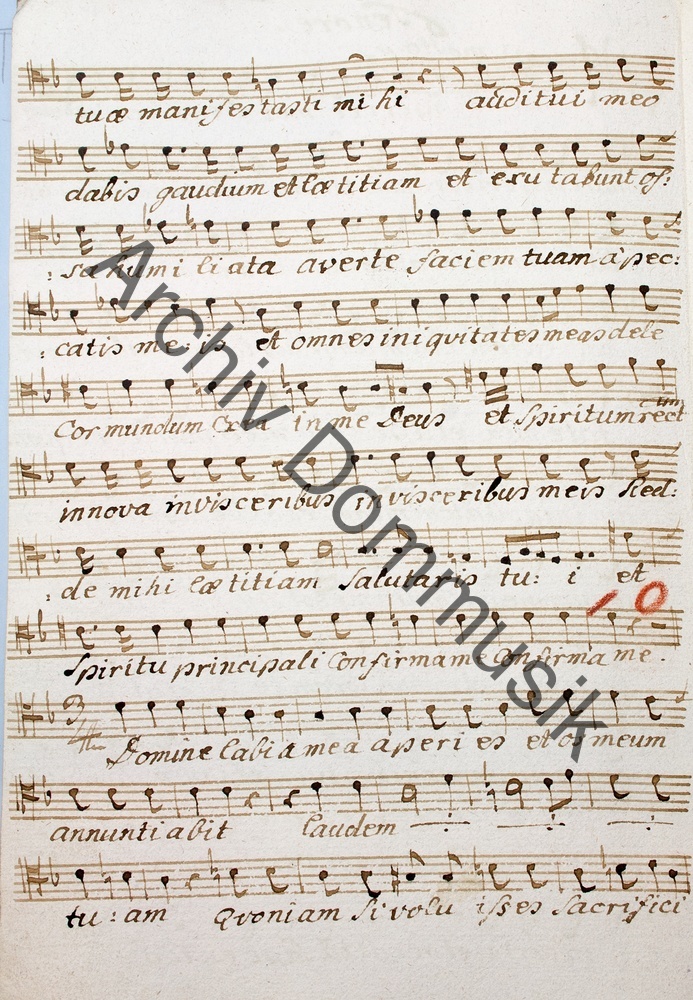 tuæ manifestasti mihi auditui meo
dabis gaudium et lætitiam et exu tabunt os:
: sa humi li ata averte faciem tuam à pec:
: catis me: is et omnes ini qvitates meas dele
Cor mundum Crea in me Deus et Spiritum rect
um
in nova in visceribus in visceribus meis Red:
: de mihi læ titiam Salutaris tu: i et
10
Spiritu principali Confirma me Confirma me.
3
Domine labia mea aperi es et os meum
annunti abit laudem
tu: am Qvoniam Si volu isses Sacrifici
Archiv Dommusik